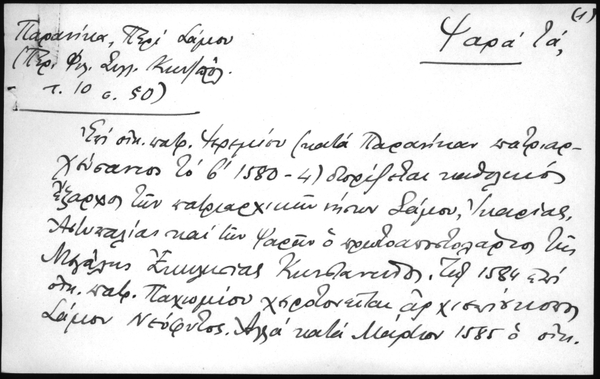 (1)
Παρανίκα, Περί Σάμου
Ψαρά τά,
(Περ. Φιλ. Συλ. Κων/πόλ.
τ. 10 σ. 50)
Ἐπί οἰκ. πατρ. Ἱερεμίου (κατά Παρανίκαν πατριαρ-
χεύσαντος τό β' 1580-4) διορίζεται καθολικός
ἔξαρχος τῶν πατριαρχικῶν νήσων Σάμου, Ἰκαρίας,
Ἀστυπαλίας καί τῶν Ψαρῶν ὁ πρωτοαποστολάριος τῆς
Μεγάλης Ἐκκλησίας Κωνσταντῖνος. Τῷ 1584 ἐπί
οἰκ. πατρ. Παχωμίου χειροτονεῖται ἀρχιεπίσκοπος
Σάμου Νεόφυτος. Ἀλλά κατά Μάρτιον 1585 ὁ οἰκ.